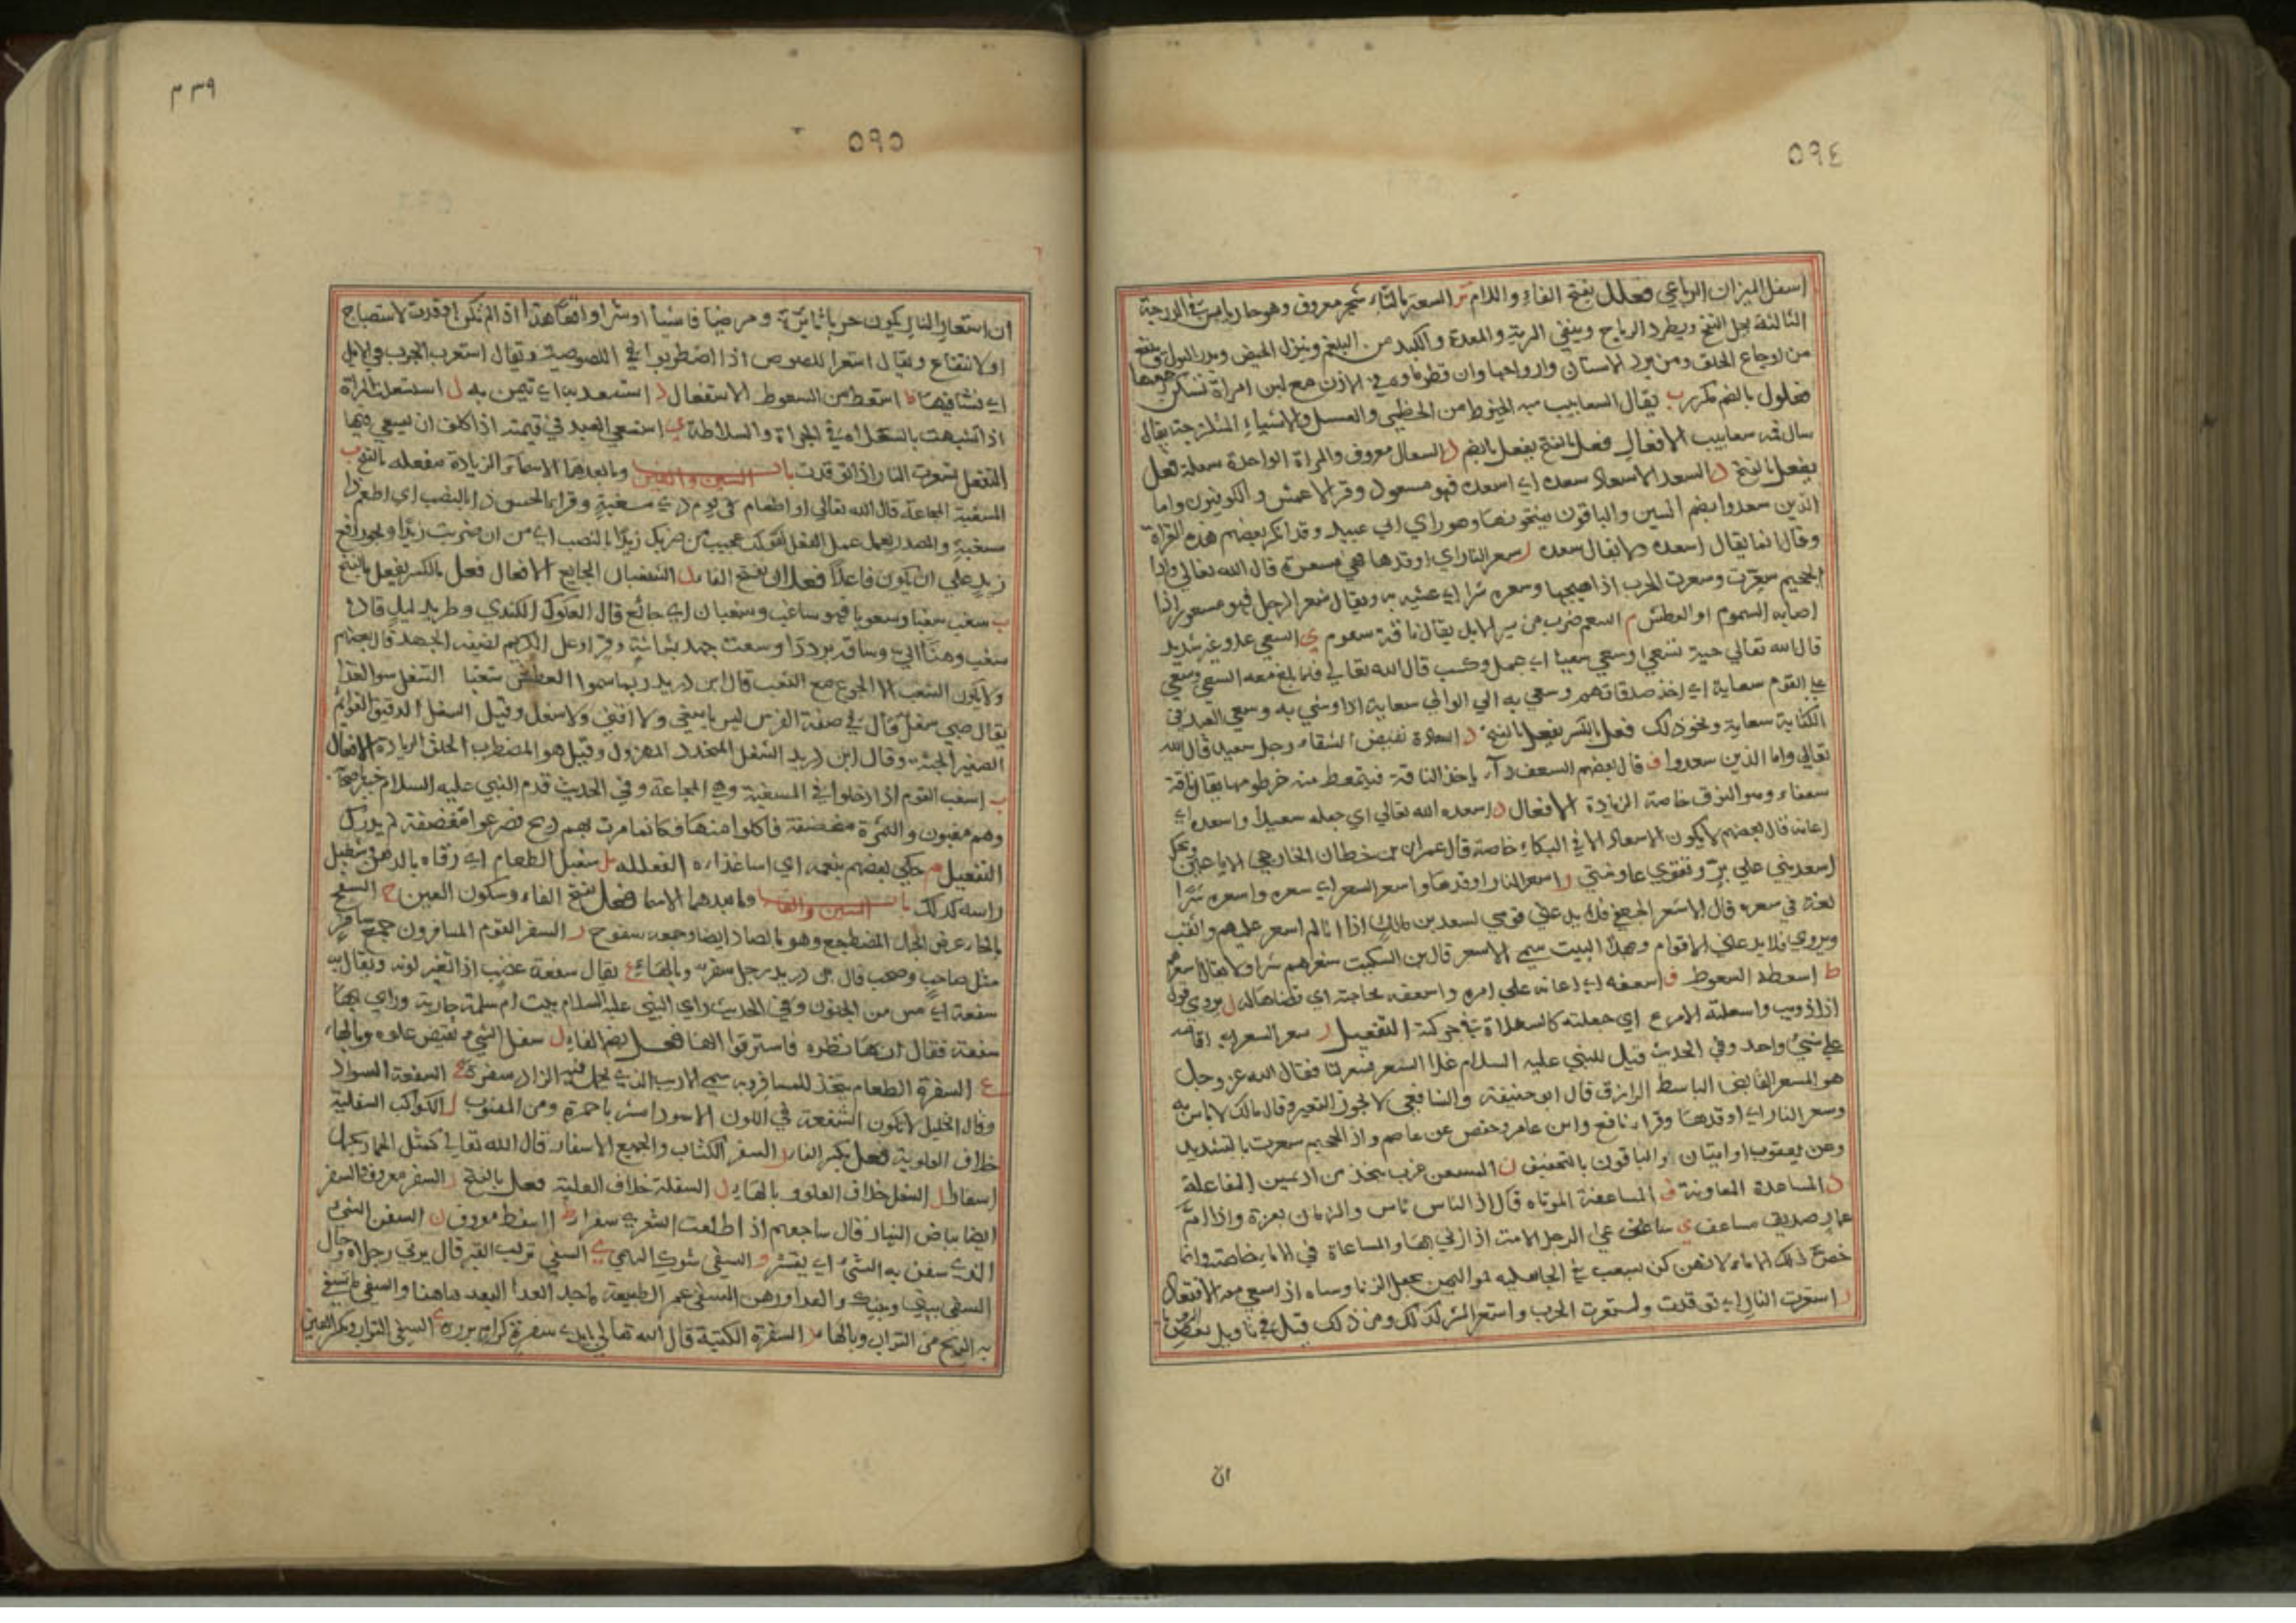 ٥٩٤
اسفل الميزان الرباعي فعلل بفتح الفاء واللام تر السعتر بالتاء شجر معروف وهو حار يابس في الدرجة
الثالثة يحل النفخ ويطرد الرياح وينقي الرية والمعدة والكبد من البلغم وينزل الحيض ويدر البول وينفع
من اوجاع الحلق ومن برد الاسنان وارواحها وان قطر ماوه في الاذن مع لبن امراة تسكن وجعها
فعلول بالضم مكرر ب يقال السعابيب من الخيوط من الخطمي والعسل والاشياء المتلزجة يقال
سال فمه سعابيب الافعال فعل بالفتح يفعل بالضم ل السعال معروف والمراة الواحدة سعلة فعل
يفعل بالفتح د السعد الاسعاد سعده اي اسعده فهو مسعود وقرا الاعمش والكوفيون واما
الذين سعدوا بضم السين والباقون بفتحونها وهو راي ابي عبيد وقد انكر بعضهم هذه القراة
وقال انما يقال اسعده ولا يقال سعده ر سعر النار اي اوقدها فهي مسعرة قال الله تعالى واذا
الجحيم سعرت وسعرت الحرب اذا هيجها وسعره شرا اي عشيه به ويقال سعر الرجل فهو مسعور اذا
اصابه السموم او العطش م السعم ضرب من سير الابل يقال ناقة سعوم ي السعي عدو غير شديد
قال الله تعالى حية تسعى وسعي سعيا اي عمل وكسب قال الله تعالى فلما بلغ معه السعي وسعي
على القوم سعاية اي اخذ صدقاتهم وسعي به الي الوالي سعاية اذا وشي به وسعي العبد في
الكتابة سعاية ونحو ذلك فعل بالكسر يفعل بالفتح د السعادة نقيض الشقا رجل سعيد قال الله
تعالي واما الذين سعدوا ف قال بعضهم السعف داء ياخذ الناقة فيتمعط منه خرطومها يقال ناقة
سعفاء وهو النوق خاصة الزيادة الافعال د اسعده الله تعالي اي جعله سعيدا واسعده اي
اعانه قال بعضهم لا يكون الاسعاد الا في البكاء خاصة قال عمران بن خطان الخارجي الا يا عين ويحك
اسعديني علي بر وتقوي عاونيني ر اسعر النار اوقدها واسعر السعر اي سعره واسعره شرا
لغة في سعره قال الاسعر الجعفي فلا يدعني قومي لسعد بن مالك اذا انا لم اسعر عليهم واثقب
ويروي فلا يدعني الاقوام وبهذا البيت سمي الاسعر قال بن السكيت سعرهم شرا ولا يقال اسعرهم
ط اسعطه السعوط ف اسعفه اي اعانه علي امره واسعفه بحاجته اي قضاها له ل يروي قول
اذ اذويب واسعلته الامرع اي جعلته كالسعلاة في حركة التفعيل ر سعر السعر اي اقامه
علي شيء واحد وفي الحديث قيل للنبي عليه السلام غلا السعر فسعر لنا فقال الله عز وجل
هو المسعر القابض الباسط الرازق قال ابو حنيفة والشافعي لا يجوز التسعير وقال مالك لا باس به
وسعر النار اي اوقدها وقرا نافع وابن عامر وحفص عن عاصم واذا الجحيم سعرت بالتشديد
وعن يعقوب روايتان والباقون بالتخفيف ن المسعن غرب يتخذ من اديمين المفاعلة
د المساعدة المعاونة ف المساعفة المواتاه قال اذ الناس ناس والزمان بعزة واذ ام
عمار صديق مساعف ي ساعي الرجل الامة اذا زني بها والمساعاة في الاماء خاصة وانما
خص ذلك الاماء لانهن كن تسعب في الجاهلية لمواليهن بجعل الزنا وساه اذ اسعي معه الافتعال
ر استعرت النار اي توقدت واستعرت الحرب واستعر الشر كذلك ومن ذلك قيل في تاويل بعض الرؤيا
ان
٢٣٩
٥٩٥
ان استعار النار يكون حربا ثايرة ومرضا فاشيا او شرا واقعا هذا اذا لم تكن اوقدت لاستصباح
او لانتفاع ويقال استعر اللصوص اذا اضطربوا في اللصوصية ويقال استعرب الجرب في الابل
اي نشا فيها ط استعط من السعوط الاستفعال د استسعد به اي تيمن به ل استسعلت المراة
اذا اشبهت بالسعلاه في الجراة والسلاطة ي استسعي العبد في قيمته اذا كلف ان يسعي فيها
التفعل تسعرت النار اذا توقدت باب السين والغين وما بعدهما الاسماء الزيادة مفعله بالفتح ب
المسغبة المجاعة قال الله تعالي او اطعام في يوم ذي مسغبة وقرا الحسن ذا بالنصب اي اطعم ذا
مسغبة والمصدر يعمل عمل الفعل كقولك عجبت من ضربك زيدا بالنصب اي من ان ضربت زيدا ويجوز رفع
زيد علي ان يكون فاعلا فعلان بفتح الفاء ب السغبان الجايع الافعال فعل بالكسر يفعل بالفتح
ب سغب سغبا وسغوبا فهو ساغب وسغبان اي جائع قال العكوك الكندي وطريد ليل قاده
سغب وهنا الي وساقه برد
ولا يكون السغب الا الجوع مع التعب قال ابن دريد ربما سموا العطش سغبا السغل سوء الغذا
يقال صبي سغل قال في صفة الفرس ليس باسفي ولا اقني ولا سغل وقيل السغل الدقيق القوائم
الصغير الجثه وقال ابن دريد السغل المتخدد المهزول وقيل هو المضطرب الخلق الزيادة الافعال
ب اسغب القوم اذا دخلوا في المسغبة وهي المجاعة وفي الحديث قدم النبي عليه السلام خيبر باصحابه
وهم مسغبون والثمرة مغضفة فاكلوا منها فكانما مرت بهم ريح فصرعوا مغضفة لم يدرك
التفعيل م حكي بعضهم سغمه اي اساء غذاءه الفعلله بل سغبل الطعام اي رقاه بالدهن وسغبل
راسه كذلك باب السين والفاء وما بعدهما الاسما فعل بفتح الفاء وسكون العين ح السفح
بالحاء عرض الجبل المضطجع وهو بالصاد ايضا وجمعه سفوح ر السفر القوم المسافرون جمع سافر
مثل صاحب وصحب قال ابن دريد رجل سفر وبالهاء ع يقال سفعة غضب اذا تغير لونه ويقال به
سفعة اي مس من الجنون وفي الحديث راي النبي عليه السلام بيت ام سلمة جارية وراي بها
سفعة فقال ان بها نظره فاسترقوا لها فعل بضم الفاء ل سفل الشيء نقيض علوه وبالهاء
ع السفرة الطعام يتخذ للمسافر وبه سمي الاديب الذي يحمل فيه الزاد سفره ع السفعة السواد
وقال الخليل لا تكون السفعة في اللون الا سوادا مشربا حمرة ومن المنسوب ل الكواكب السفلية
خلاف العلوية فعل بكسر الفاء ر السفر الكتاب والجميع الاسفار قال الله تعالي كمثل الحمار يحمل
اسفارا ل السفل خلاف العلو وبالهاء ل السفلة خلاف العلية فعل بالفتح ر السفر معروف والسفر
ايضا بياض النهار قال ساجعهم اذا طلعت الشعري سفرا ط السفط معروف ن السفن الشيء
الذي سفن به الشيء اي يقشر و السفي شوك البهمي ي السفي تراب القبر قال يرثي رجلا وحال
السفي بيني وبينك والعدا ورهن السفي غمر الطبيعة ماجد العدا البعد هاهنا والسفي ما تسفي
به الريح من التراب وبالهاء ر السفرة الكتبة قال الله تعالي بايدي سفرة كرام بررة ي السفي التراب وبكسر العين